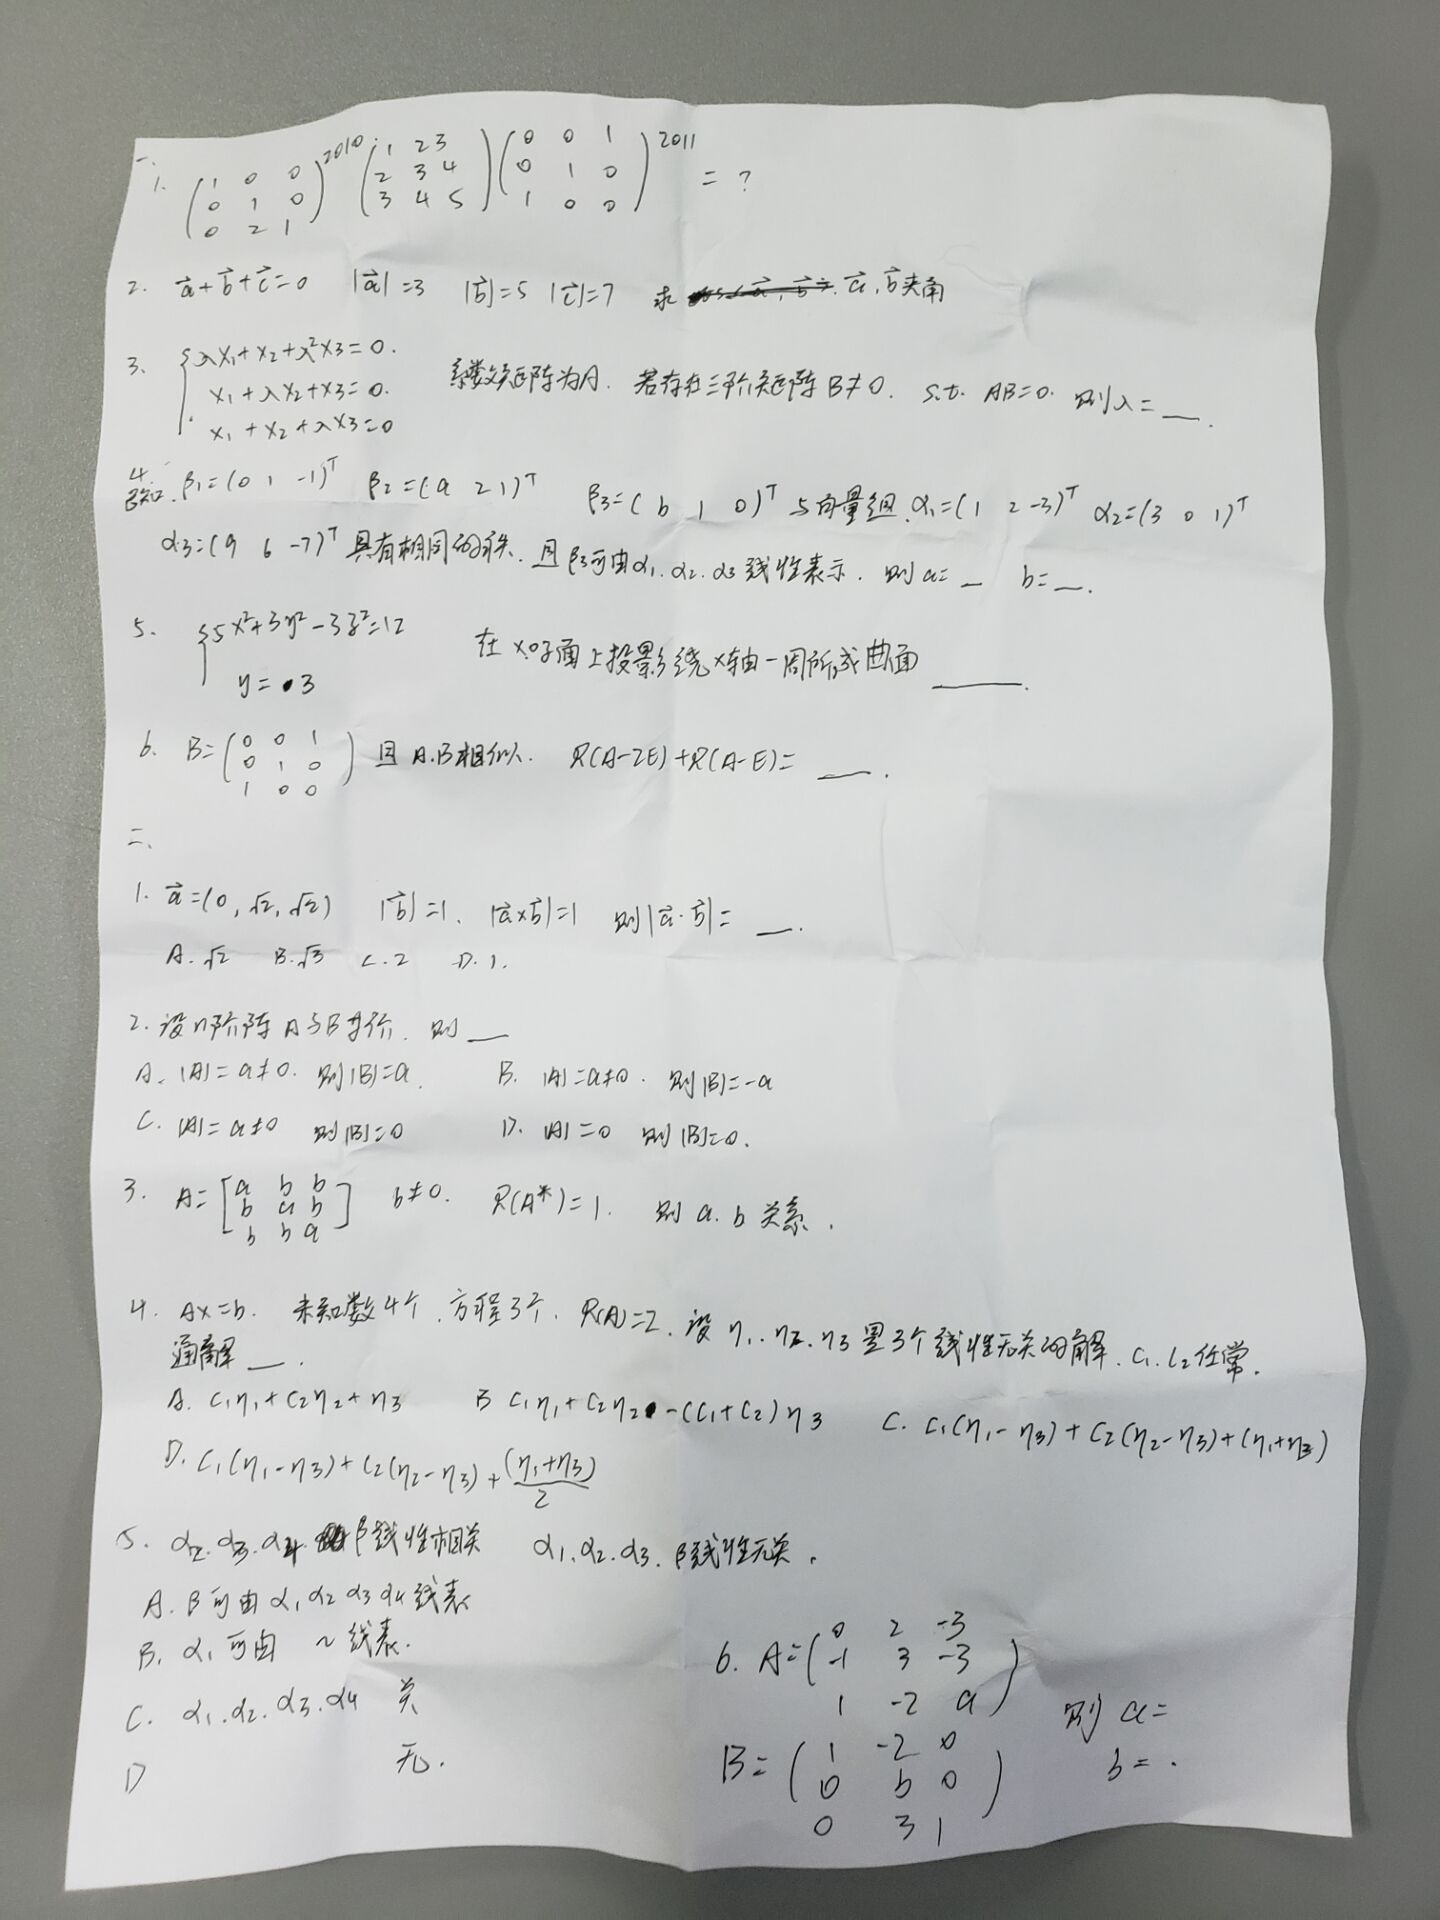 一.
1. (1 0 0
0 1 0
0 2 1)^2010 (1 2 3
2 3 4
3 4 5) (0 0 1
0 1 0
1 0 0)^2011 = ?
2. a⃗+b⃗+c⃗=0 |a⃗|=3 |b⃗|=5 |c⃗|=7 求 a⃗,b⃗夹角
3. {λx₁+x₂+λ²x₃=0.
x₁+λx₂+x₃=0.
x₁+x₂+λx₃=0
系数矩阵为A. 若存在三阶矩阵B≠0. s.t. AB=0. 则λ=__.
4. 已知. β₁=(0 1 -1)ᵀ β₂=(a 2 1)ᵀ β₃=(b 1 0)ᵀ 与向量组.α₁=(1 2 -3)ᵀ α₂=(3 0 1)ᵀ
α₃=(9 6 -7)ᵀ 具有相同的秩. 且β₃可由α₁.α₂.α₃线性表示. 则a=__ b=__.
5. {5x²+3y²-3z²=12
y=3
在xoz面上投影绕x轴一周所成曲面____.
6. B=(0 0 1
0 1 0
1 0 0) 且A.B相似. R(A-2E)+R(A-E)=___.
二.
1. a⃗=(0,√2,√2) |b⃗|=1. |a⃗×b⃗|=1 则|a⃗·b⃗|=__.
A.√2 B.√3 C.2 D.1.
2.设n阶阵A与B等价. 则__
A. |A|=a≠0. 则|B|=a. B. |A|=a≠0. 则|B|=-a
C. |A|=a≠0 则|B|=0 D. |A|=0 则|B|=0.
3. A=[a b b
b a b
b b a] b≠0. R(A*)=1. 则a.b关系.
4. Ax=b. 未知数4个.方程3个. R(A)=2.设η₁.η₂.η₃是3个线性无关的解.c₁.c₂任常.
通解__.
A. c₁η₁+c₂η₂+η₃ B c₁η₁+c₂η₂-(c₁+c₂)η₃ C. c₁(η₁-η₃)+c₂(η₂-η₃)+(η₁+η₃)
D. c₁(η₁-η₃)+c₂(η₂-η₃)+(η₁+η₃)/2
5. α₂.α₃.α₄.β线性相关 α₁.α₂.α₃.β线性无关.
A. β可由α₁α₂α₃α₄线表
B. α₁可由 ~线表.
C. α₁.α₂.α₃.α₄ 关
D 无.
6. A=(0 2 -3
-1 3 -3
1 -2 a)
B=(1 -2 0
0 b 0
0 3 1)
则a=
b=.